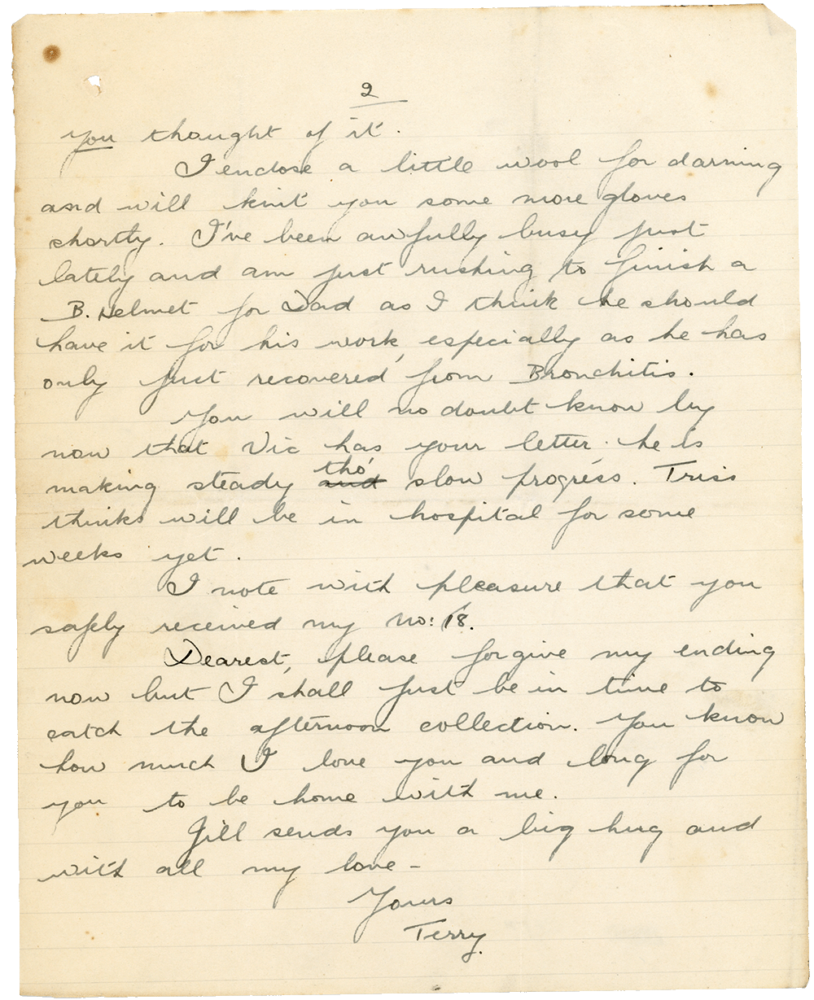 2
you thought of it.
I enclose a little wool for darning
and will knit you some more gloves
shortly. I've been awfully busy just
lately and am just rushing to finish a
B. Helmet for Dad as I think he should
have it for his work, especially as he has
only just recovered from Bronchitis.
You will no doubt know by
now that Vic has your letter. he is
making steady and tho' slow progress. Triss
thinks will be in hospital for some
weeks yet.
I note with pleasure that you
safely received my No: 18.
Dearest, please forgive my ending
now but I shall just be in time to
catch the afternoon collection. You know
how much I love you and long for
you to be home with me.
Jill sends you a big hug and
with all my love –
Yours
Terry.